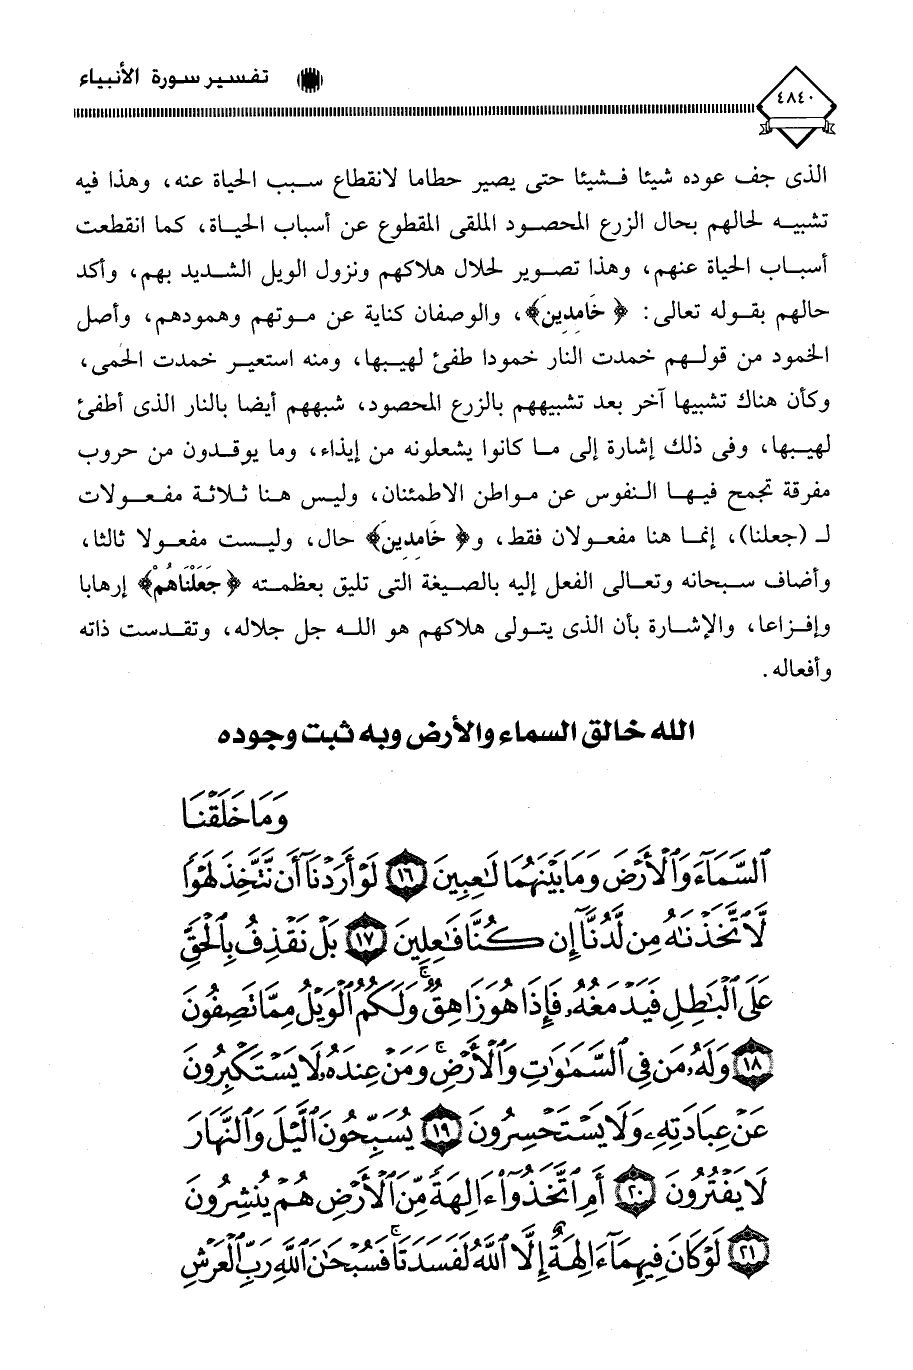 تفسير سورة الأنبياء
٤٨٤٠
الذى جف عوده شيئا فشيئا حتى يصير حطاما لانقطاع سبب الحياة عنه، وهذا فيه
تشبيه لحالهم بحال الزرع المحصود الملقى المقطوع عن أسباب الحياة، كما انقطعت
أسباب الحياة عنهم، وهذا تصوير لحلال هلاكهم ونزول الويل الشديد بهم، وأكد
حالهم بقوله تعالى: ﴿خَامِدِينَ﴾، والوصفان كناية عن موتهم وهمودهم، وأصل
الخمود من قولهم خمدت النار خمودا طفئ لهيبها، ومنه استعير خمدت الحمى،
وكأن هناك تشبيها آخر بعد تشبيههم بالزرع المحصود، شبههم أيضا بالنار الذى أطفئ
لهيبها، وفى ذلك إشارة إلى ما كانوا يشعلونه من إيذاء، وما يوقدون من حروب
مفرقة تجمح فيها النفوس عن مواطن الاطمئنان، وليس هنا ثلاثة مفعولات
لـ (جعلنا)، إنما هنا مفعولان فقط، و﴿خَامِدِينَ﴾ حال، وليست مفعولا ثالثا،
وأضاف سبحانه وتعالى الفعل إليه بالصيغة التى تليق بعظمته ﴿جَعَلْنَاهُمْ﴾ إرهابا
وإفزاعا، والإشارة بأن الذى يتولى هلاكهم هو الله جل جلاله، وتقدست ذاته
وأفعاله.
الله خالق السماء والأرض وبه ثبت وجوده
وَمَا خَلَقْنَا
ٱلسَّمَآءَ وَٱلْأَرْضَ وَمَا بَيْنَهُمَا لَٰعِبِينَ ١٦ لَوْ أَرَدْنَآ أَن نَّتَّخِذَ لَهْوًا
لَّٱتَّخَذْنَٰهُ مِن لَّدُنَّآ إِن كُنَّا فَٰعِلِينَ ١٧ بَلْ نَقْذِفُ بِٱلْحَقِّ
عَلَى ٱلْبَٰطِلِ فَيَدْمَغُهُۥ فَإِذَا هُوَ زَاهِقٌ ۚ وَلَكُمُ ٱلْوَيْلُ مِمَّا تَصِفُونَ
١٨ وَلَهُۥ مَن فِى ٱلسَّمَٰوَٰتِ وَٱلْأَرْضِ ۚ وَمَنْ عِندَهُۥ لَا يَسْتَكْبِرُونَ
عَنْ عِبَادَتِهِۦ وَلَا يَسْتَحْسِرُونَ ١٩ يُسَبِّحُونَ ٱلَّيْلَ وَٱلنَّهَارَ
لَا يَفْتُرُونَ ٢٠ أَمِ ٱتَّخَذُوٓا۟ ءَالِهَةً مِّنَ ٱلْأَرْضِ هُمْ يُنشِرُونَ
٢١ لَوْ كَانَ فِيهِمَآ ءَالِهَةٌ إِلَّا ٱللَّهُ لَفَسَدَتَا ۚ فَسُبْحَٰنَ ٱللَّهِ رَبِّ ٱلْعَرْشِ